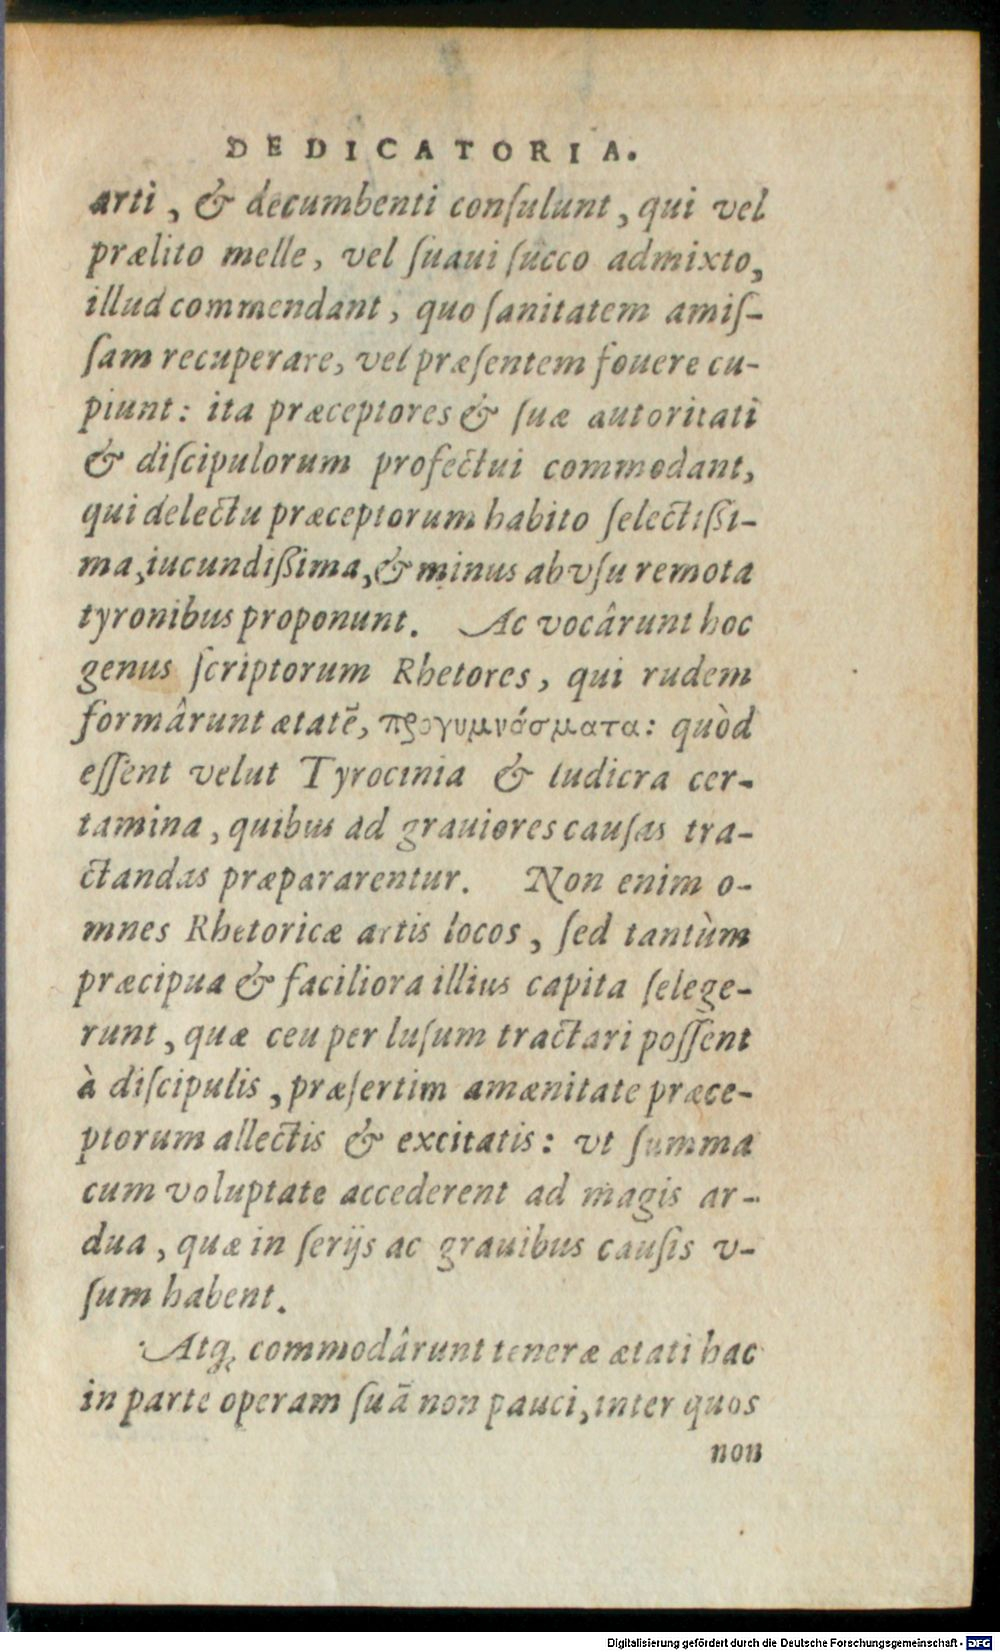 DEDICATORIA.
arti, & decumbenti conſulunt, qui vel
prælito melle, vel ſuaui ſucco admixto,
illud commendant, quo ſanitatem amiſ-
ſam recuperare, vel præſentem fouere cu-
piunt: ita præceptores & ſuæ autoritati
& diſcipulorum profectui commodant,
qui delectu præceptorum habito ſelectiſsi-
ma, iucundiſsima, & minus ab vſu remota
tyronibus proponunt. Ac vocârunt hoc
genus ſcriptorum Rhetores, qui rudem
formârunt ætatē, προγυμνάσματα: quòd
eſſent velut Tyrocinia & ludicra cer-
tamina, quibus ad grauiores cauſas tra-
ctandas præpararentur. Non enim o-
mnes Rhetoricæ artis locos, ſed tantùm
præcipua & faciliora illius capita ſelege-
runt, quæ ceu per luſum tractari poſſent
à diſcipulis, præſertim amænitate præce-
ptorum allectis & excitatis: vt ſumma
cum voluptate accederent ad magis ar-
dua, quæ in ſerijs ac grauibus cauſis v-
ſum habent.
Atq; commodârunt teneræ ætati hac
in parte operam ſuā non pauci, inter quos
non
Digitalisierung gefördert durch die Deutsche Forschungsgemeinschaft - DFG